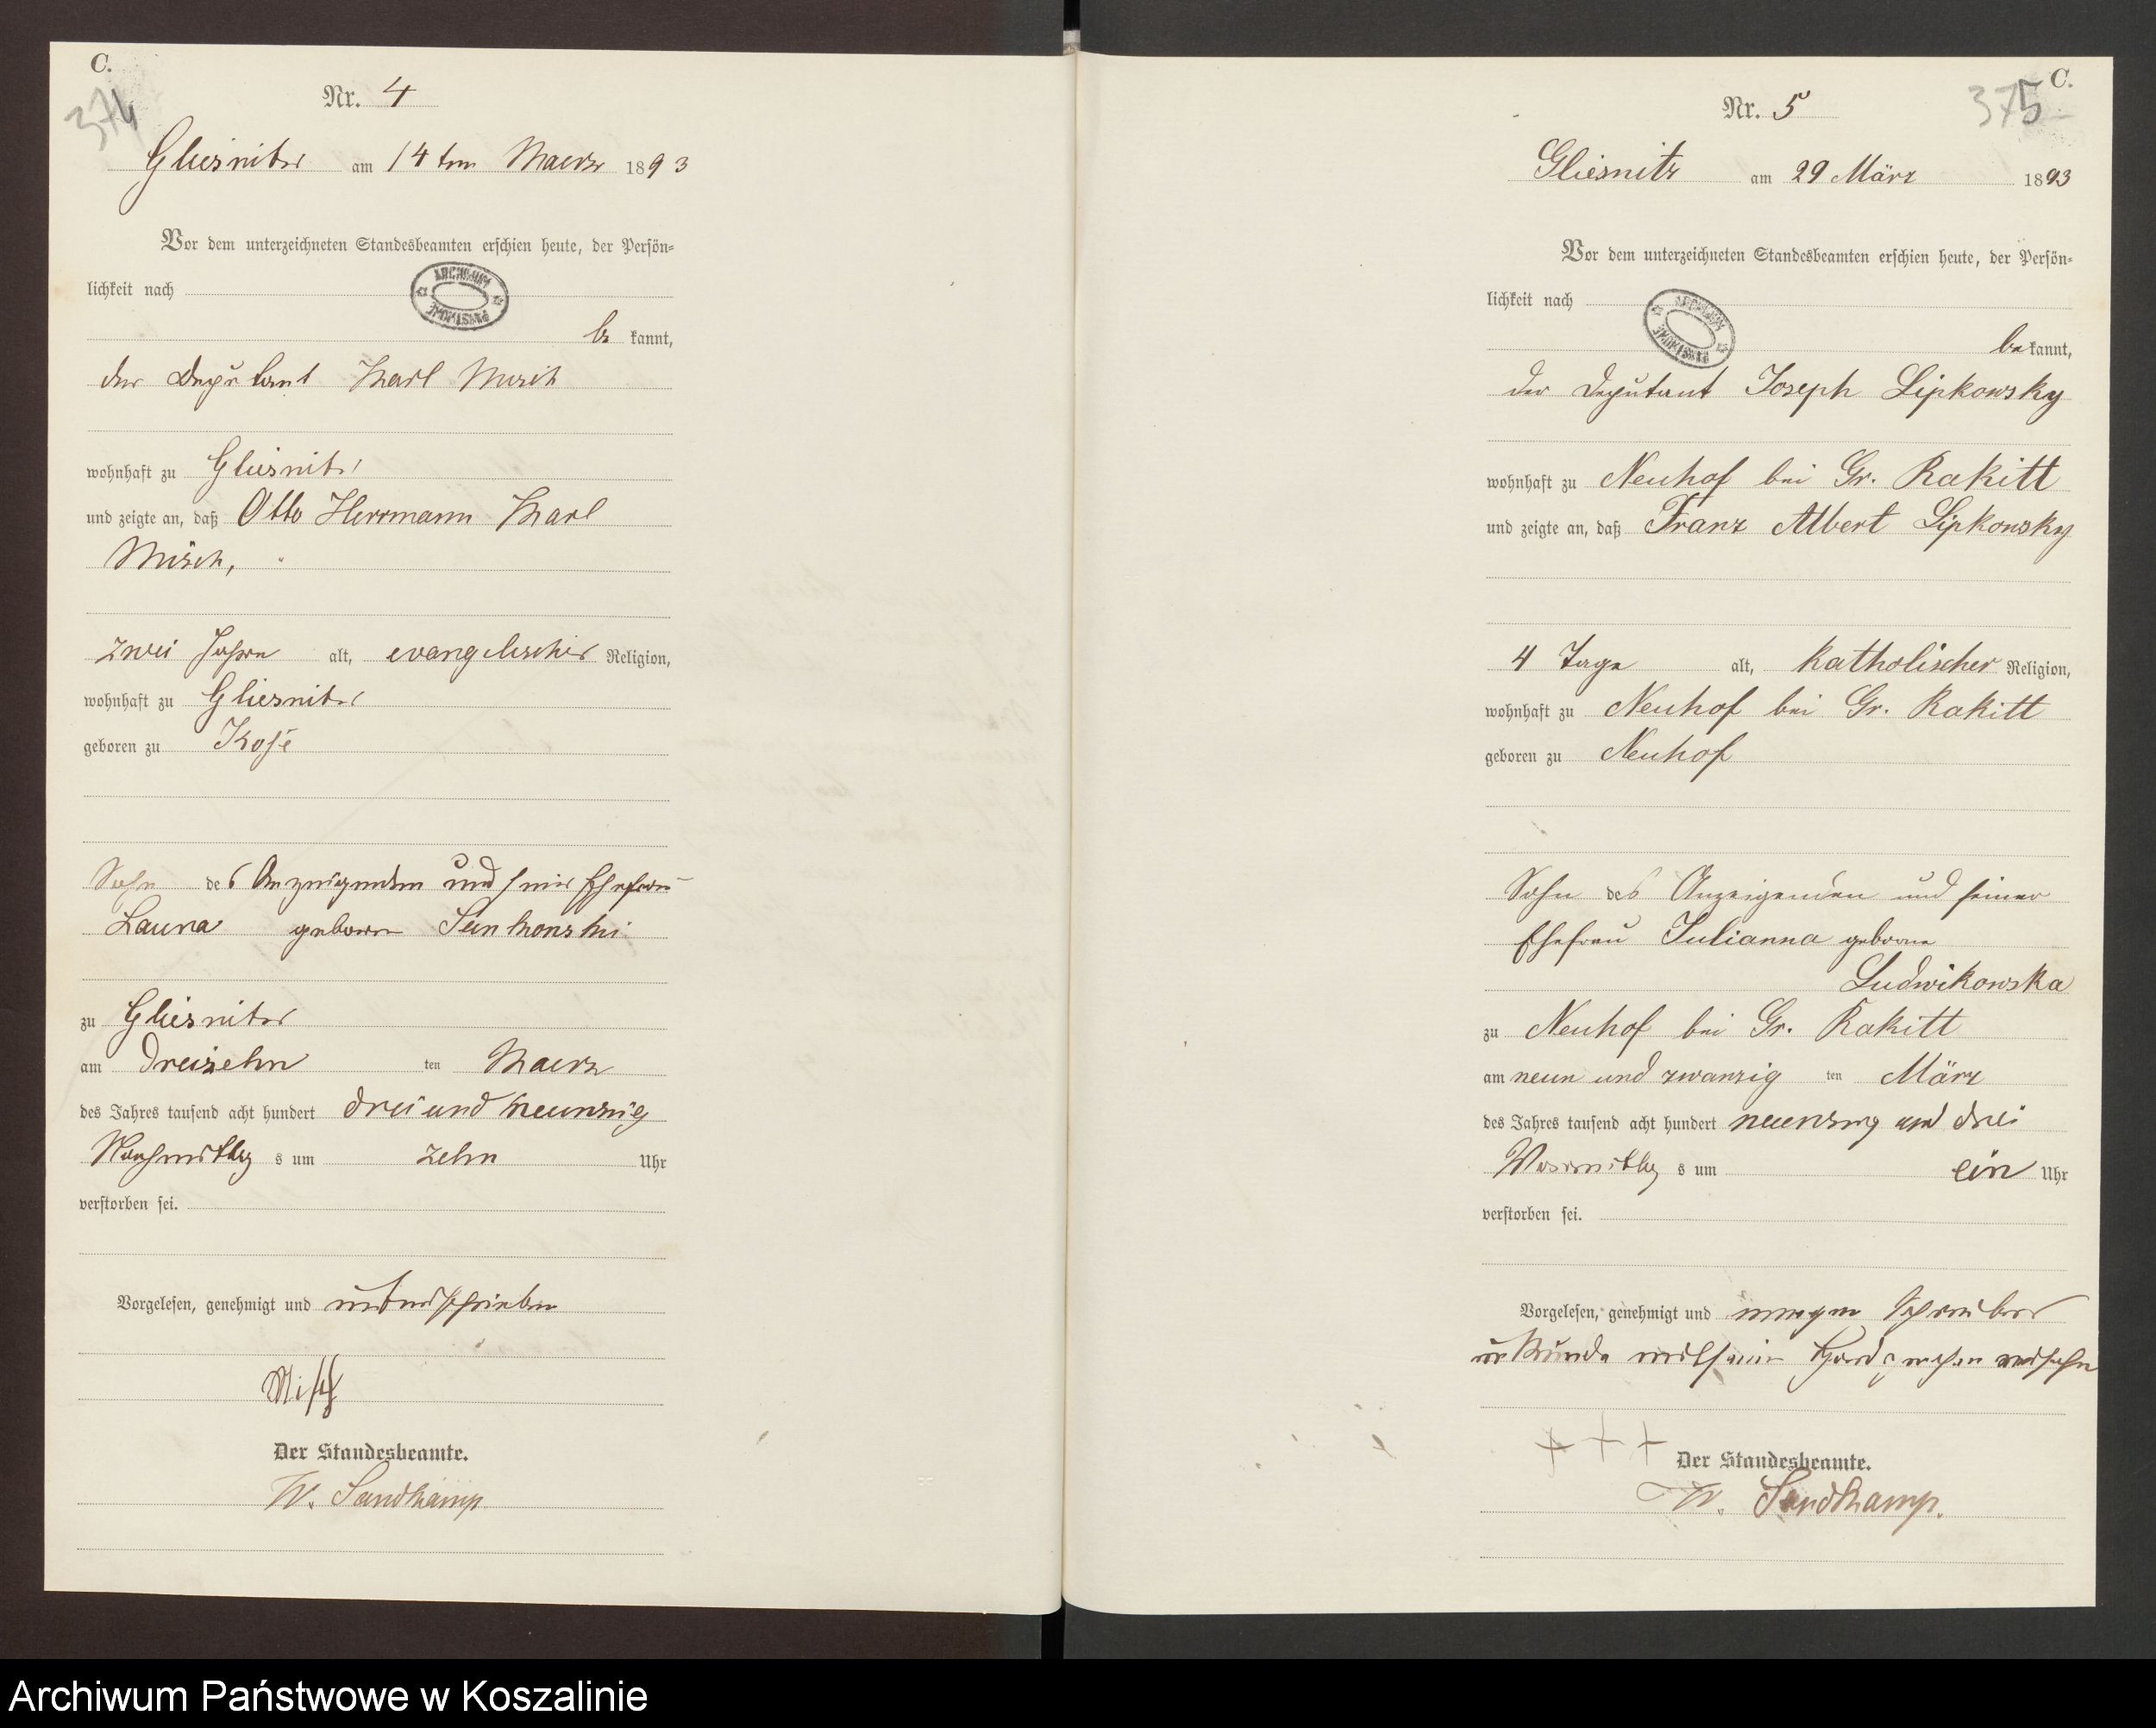 C.
374
Nr. 4
Gliesnitz am 14ten Maerz 1893
Vor dem unterzeichneten Standesbeamten erschien heute, der Persön=
lichkeit nach
ARCHIWUM PAŃSTWOWE
be kannt,
der Deputant Karl Misch
wohnhaft zu Gliesnitz
und zeigte an, daß Otto Herrmann Karl
Misch,
zwei Jahre alt, evangelischer Religion,
wohnhaft zu Gliesnitz
geboren zu Kose
Sohn des Anzeigenden und seiner Ehefrau
Laura geborne
zu Gliesnitz
am dreizehn ten Maerz
des Jahres tausend acht hundert drei und neunzig
Nachmittag s um zehn Uhr
verstorben sei.
Vorgelesen, genehmigt und unterschrieben
Misch
Der Standesbeamte.
W. Sandkamp
C.
375
Nr. 5
Gliesnitz am 29 März 1893
Vor dem unterzeichneten Standesbeamten erschien heute, der Persön=
lichkeit nach
ARCHIWUM PAŃSTWOWE
be kannt,
der Deputant Joseph Lipkowsky
wohnhaft zu Neuhof bei Gr. Rakitt
und zeigte an, daß Franz Albert Lipkowsky
4 Tage alt, katholischer Religion,
wohnhaft zu Neuhof bei Gr. Rakitt
geboren zu Neuhof
Sohn des Anzeigenden und seiner
Ehefrau Julianna geborne
Ludwikowska
zu Neuhof bei Gr. Rakitt
am neun und zwanzig ten März
des Jahres tausend acht hundert neunzig und drei
Vormittag s um ein Uhr
verstorben sei.
Vorgelesen, genehmigt und wegen Schreibens
unkunde mit seinem Handzeichen versehen
+++
Der Standesbeamte.
W. Sandkamp.
Archiwum Państwowe w Koszalinie